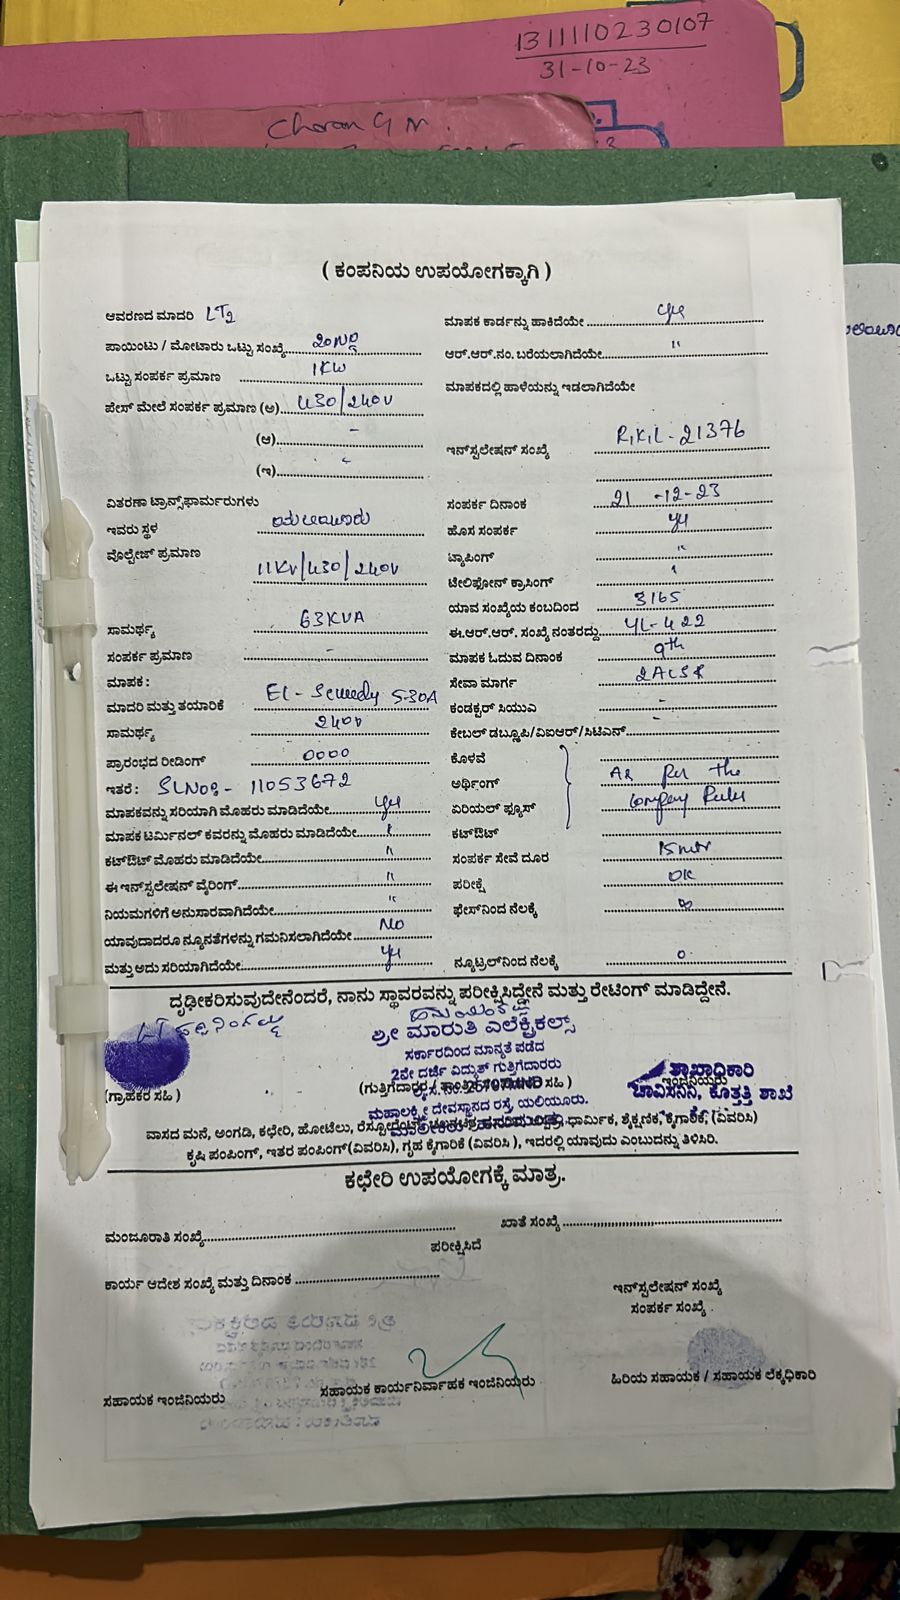 13111110230107
31-10-23
Charan G M.
( ಕಂಪನಿಯ ಉಪಯೋಗಕ್ಕಾಗಿ )
ಆವರಣದ ಮಾದರಿ LT2
ಪಾಯಿಂಟು / ಮೋಟಾರು ಒಟ್ಟು ಸಂಖ್ಯೆ
ಒಟ್ಟು ಸಂಪರ್ಕ ಪ್ರಮಾಣ 1KW
ಪೇಸ್ ಮೇಲೆ ಸಂಪರ್ಕ ಪ್ರಮಾಣ (ಅ) 430/240V
(ಆ) -
(ಇ)
ವಿತರಣಾ ಟ್ರಾನ್ಸ್‌ಫಾರ್ಮರುಗಳು
ಇವರು ಸ್ಥಳ ಯಲಿಯೂರು
ವೊಲ್ಟೇಜ್ ಪ್ರಮಾಣ
11KV/430/240V
ಸಾಮರ್ಥ್ಯ 63KVA
ಸಂಪರ್ಕ ಪ್ರಮಾಣ -
ಮಾಪಕ :
ಮಾದರಿ ಮತ್ತು ತಯಾರಿಕೆ 5-30A
ಸಾಮರ್ಥ್ಯ 240V
ಪ್ರಾರಂಭದ ರೀಡಿಂಗ್ 0000
ಇತರೆ : SLNo:- 11053672
ಮಾಪಕವನ್ನು ಸರಿಯಾಗಿ ಮೊಹರು ಮಾಡಿದೆಯೇ yes
ಮಾಪಕ ಟರ್ಮಿನಲ್ ಕವರನ್ನು ಮೊಹರು ಮಾಡಿದೆಯೇ "
ಕಟ್‌ಔಟ್ ಮೊಹರು ಮಾಡಿದೆಯೇ "
ಈ ಇನ್‌ಸ್ಟಲೇಷನ್ ವೈರಿಂಗ್ "
ನಿಯಮಗಳಿಗೆ ಅನುಸಾರವಾಗಿದೆಯೇ "
ಯಾವುದಾದರೂ ನ್ಯೂನತೆಗಳನ್ನು ಗಮನಿಸಲಾಗಿದೆಯೇ No
ಮತ್ತು ಅದು ಸರಿಯಾಗಿದೆಯೇ yes
ಮಾಪಕ ಕಾರ್ಡನ್ನು ಹಾಕಿದೆಯೇ yes
ಆರ್.ಆರ್.ನಂ. ಬರೆಯಲಾಗಿದೆಯೇ "
ಮಾಪಕದಲ್ಲಿ ಹಾಳೆಯನ್ನು ಇಡಲಾಗಿದೆಯೇ
ಇನ್‌ಸ್ಟಲೇಷನ್ ಸಂಖ್ಯೆ R.K.L-21376
ಸಂಪರ್ಕ ದಿನಾಂಕ 21-12-23
ಹೊಸ ಸಂಪರ್ಕ yes
ಟ್ಯಾಪಿಂಗ್ "
ಟೆಲಿಫೋನ್ ಕ್ರಾಸಿಂಗ್
ಯಾವ ಸಂಖ್ಯೆಯ ಕಂಬದಿಂದ 3165
ಈ.ಆರ್.ಆರ್. ಸಂಖ್ಯೆ ನಂತರದ್ದು YL-422
ಮಾಪಕ ಓದುವ ದಿನಾಂಕ 9th
ಸೇವಾ ಮಾರ್ಗ 2ACSR
ಕಂಡಕ್ಟರ್ ಸಿಯುಎ -
ಕೇಬಲ್ ಡಬ್ಲ್ಯೂಪಿ/ವಿಐಆರ್/ಸಿಟಿಎಸ್ -
ಕೊಳವೆ
ಅರ್ಥಿಂಗ್ As Per the
ಏರಿಯಲ್ ಫ್ಯೂಸ್ Company Rules
ಕಟ್‌ಔಟ್
ಸಂಪರ್ಕ ಸೇವೆ ದೂರ 15mtr
ಪರೀಕ್ಷೆ OK
ಫೇಸ್‌ನಿಂದ ನೆಲಕ್ಕೆ ∞
ನ್ಯೂಟ್ರಲ್‌ನಿಂದ ನೆಲಕ್ಕೆ 0
ದೃಢೀಕರಿಸುವುದೇನೆಂದರೆ, ನಾನು ಸ್ಥಾವರವನ್ನು ಪರೀಕ್ಷಿಸಿದ್ದೇನೆ ಮತ್ತು ರೇಟಿಂಗ್ ಮಾಡಿದ್ದೇನೆ.
ಶ್ರೀ ಮಾರುತಿ ಎಲೆಕ್ಟ್ರಿಕಲ್ಸ್
ಸರ್ಕಾರದಿಂದ ಮಾನ್ಯತೆ ಪಡೆದ
2ನೇ ದರ್ಜೆ ವಿದ್ಯುತ್ ಗುತ್ತಿಗೆದಾರರು
ಮಹಾಲಕ್ಷ್ಮೀ ದೇವಸ್ಥಾನದ ರಸ್ತೆ, ಯಲಿಯೂರು.
(ಗ್ರಾಹಕರ ಸಹಿ)
ಶಾಖಾಧಿಕಾರಿ
ಇಂಜಿನಿಯರು
ಚಾವಿಸನಿನಿ, ಕೊತ್ತತ್ತಿ ಶಾಖೆ
ವಾಸದ ಮನೆ, ಅಂಗಡಿ, ಕಛೇರಿ, ಹೋಟೆಲು, ಧಾರ್ಮಿಕ, ಶೈಕ್ಷಣಿಕ, ಕೈಗಾರಿಕೆ, (ವಿವರಿಸಿ)
ಕೃಷಿ ಪಂಪಿಂಗ್, ಇತರ ಪಂಪಿಂಗ್ (ವಿವರಿಸಿ), ಗೃಹ ಕೈಗಾರಿಕೆ (ವಿವರಿಸಿ), ಇದರಲ್ಲಿ ಯಾವುದು ಎಂಬುದನ್ನು ತಿಳಿಸಿರಿ.
ಕಛೇರಿ ಉಪಯೋಗಕ್ಕೆ ಮಾತ್ರ.
ಮಂಜೂರಾತಿ ಸಂಖ್ಯೆ
ಖಾತೆ ಸಂಖ್ಯೆ
ಪರೀಕ್ಷಿಸಿದೆ
ಕಾರ್ಯ ಆದೇಶ ಸಂಖ್ಯೆ ಮತ್ತು ದಿನಾಂಕ
ಇನ್‌ಸ್ಟಲೇಷನ್ ಸಂಖ್ಯೆ
ಸಂಪರ್ಕ ಸಂಖ್ಯೆ
ಸಹಾಯಕ ಇಂಜಿನಿಯರು
ಸಹಾಯಕ ಕಾರ್ಯನಿರ್ವಾಹಕ ಇಂಜಿನಿಯರು
ಹಿರಿಯ ಸಹಾಯಕ / ಸಹಾಯಕ ಲೆಕ್ಕಾಧಿಕಾರಿ